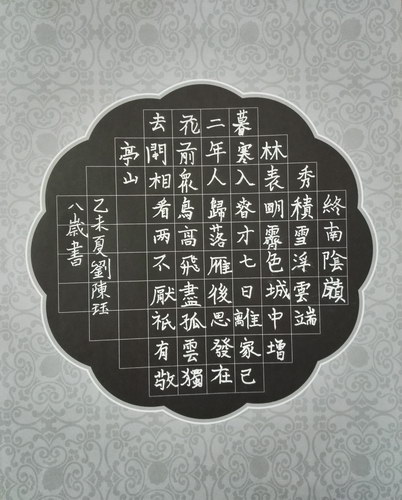 終南陰嶺
秀積雪浮雲端
林表明霽色城中增
暮寒入春才七日離家已
二年人歸落雁後思發在
花前眾鳥高飛盡孤雲獨
去閒相看两不厭祇有敬
亭山
乙未夏劉陳珏
八歲書